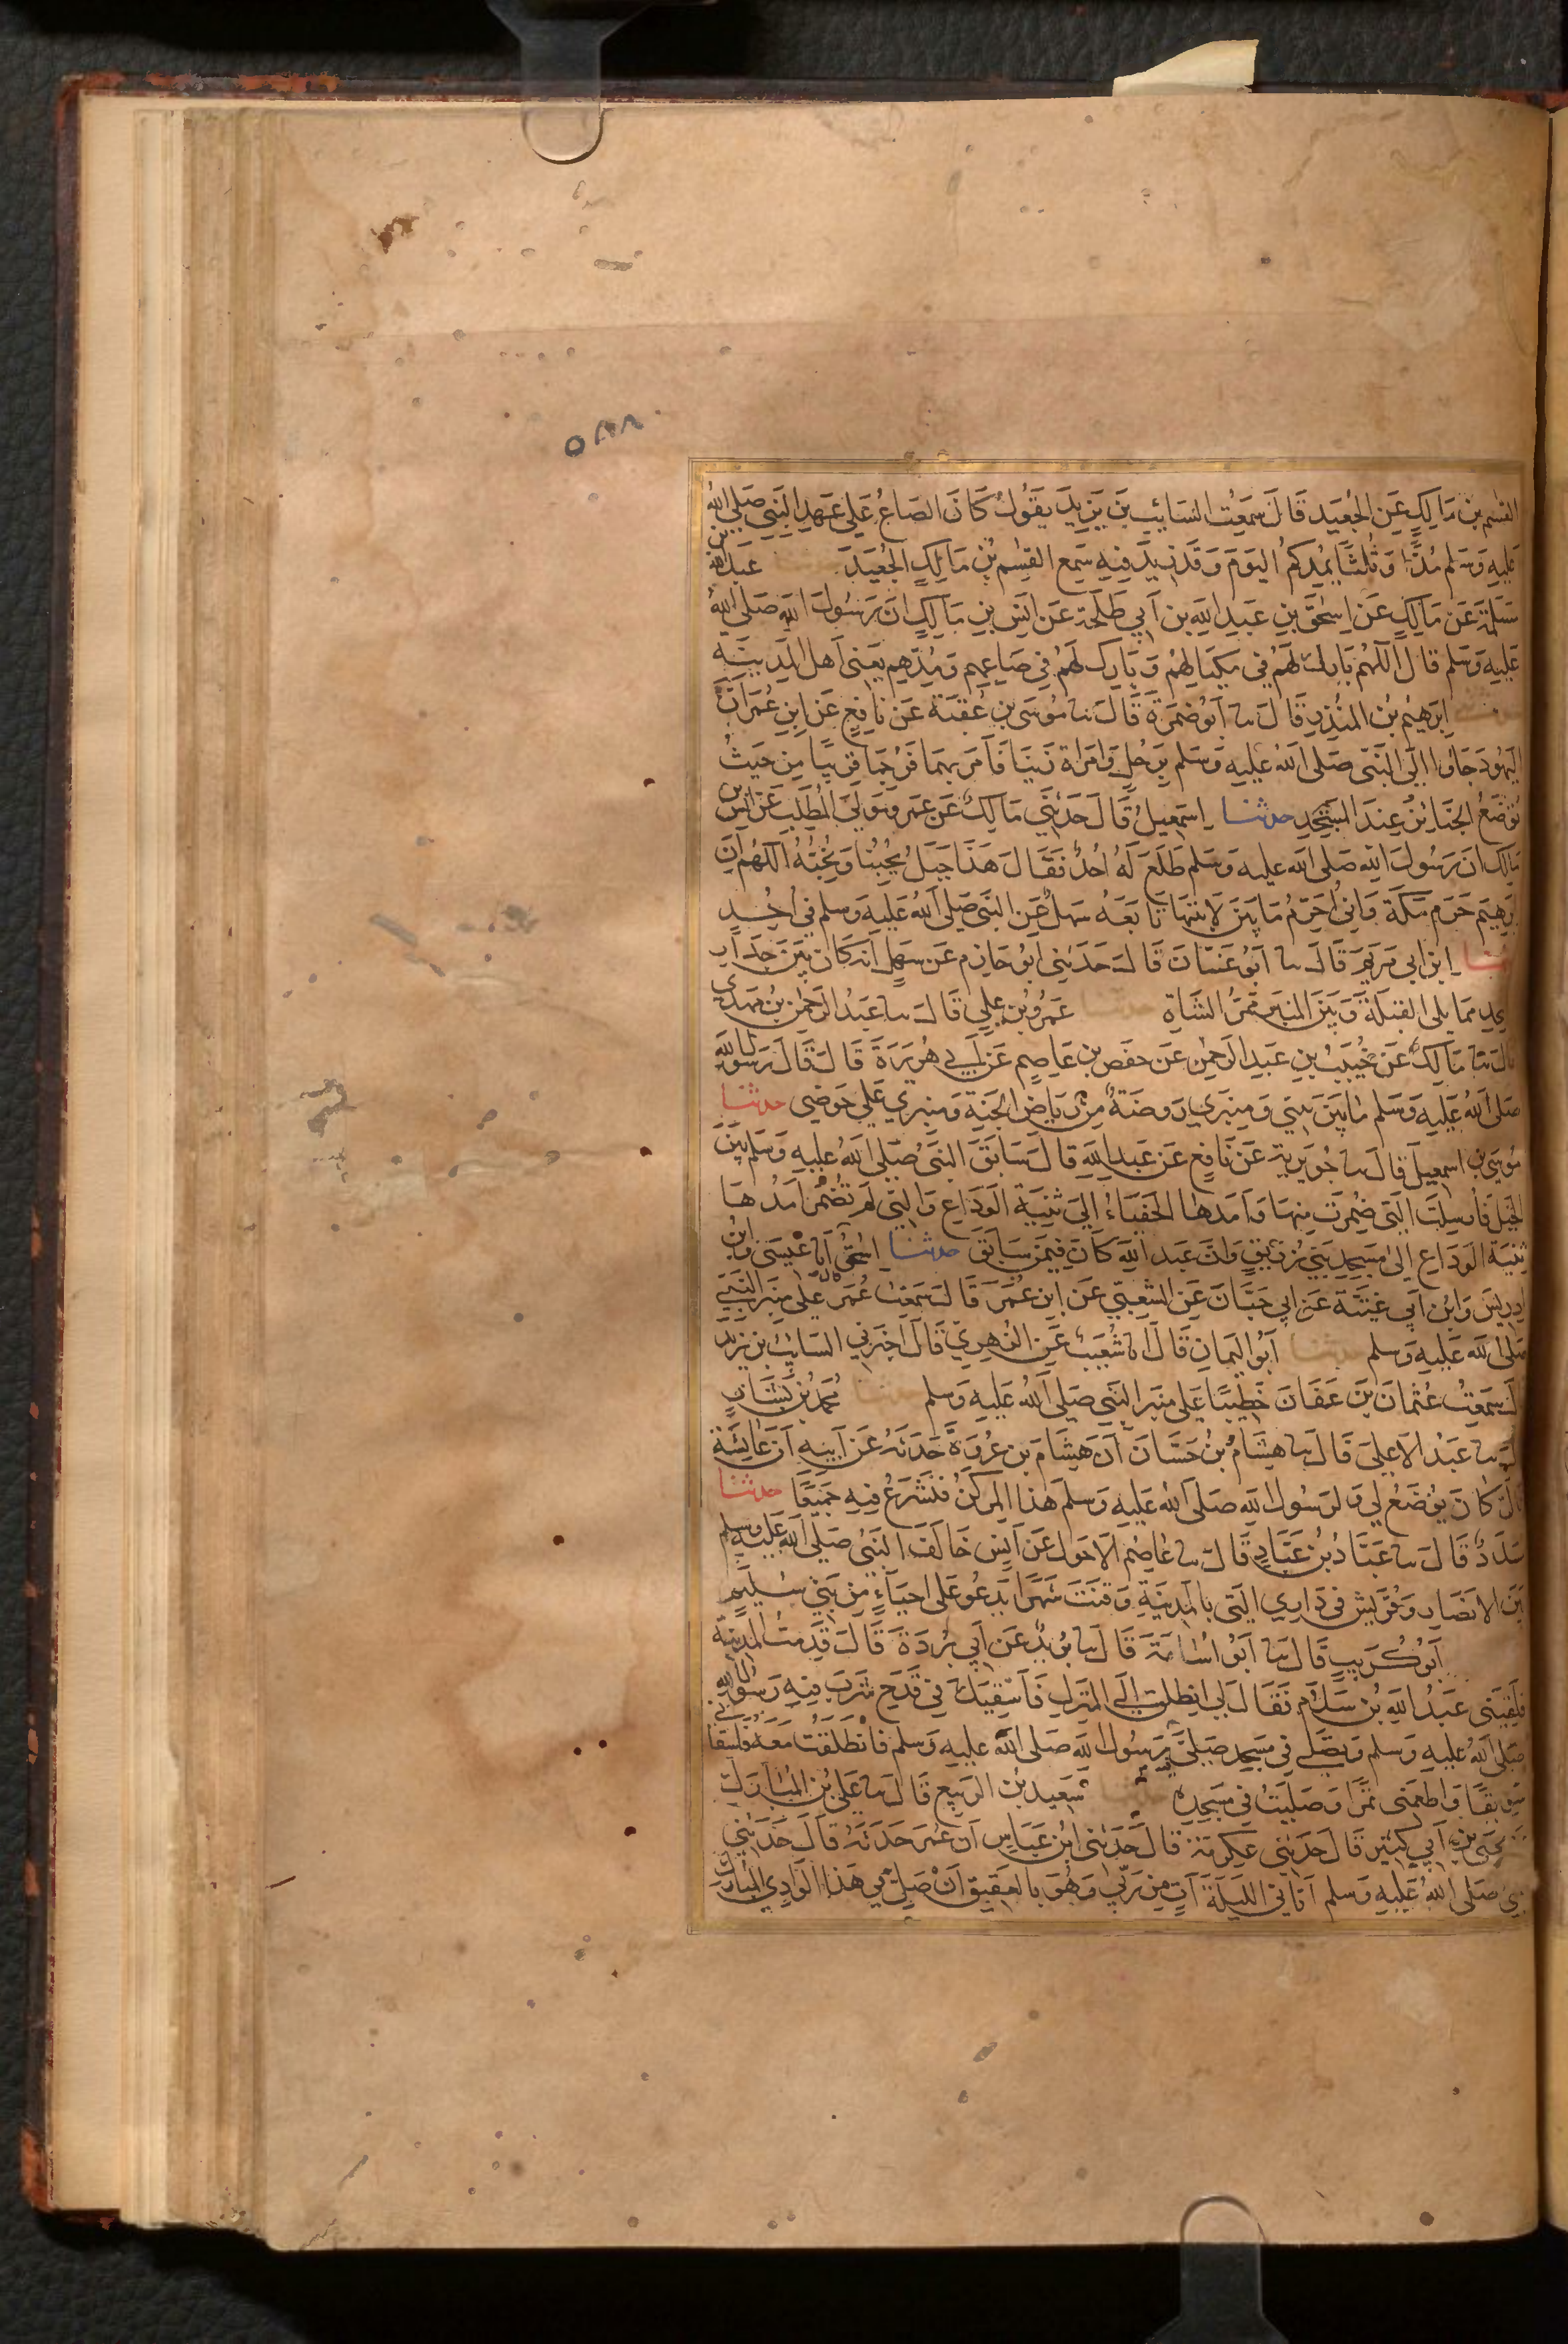 ٥٨٨
القسم بن مَالِكٍ عَنِ الجُعَيدِ قَالَ سَمِعْتُ السَّائِبَ بنَ يَزيدَ يَقُولُ كَانَ الصَّاعُ عَلى عَهدِ النَّبِي صَلى اللهُ
عَلَيهِ وَسَلم مُدًّا وَثُلُثًا بِمُدِكُمُ اليَومَ وَقَد زِيدَ فِيهِ سَمِعَ القسِم بنُ مَالِكٍ الجُعَيدَ عبدالله بن
مَسْلَمَةَ عَن مَالِكٍ عَن اِسْحٰقَ بنِ عَبدِ اللهِ بن اَبي طَلحَة عَن اَنَسِ بنِ مَالِكٍ اَن رَسُولَ اللهِ صَلى اللهُ
عَلَيهِ وَسَلم قَالَ اَللّهُمَّ بَارِك لَهُم فى مِكيَالِهِمْ وَبَارِك لَهُمْ فِي صَاعِهِم وَمُدِّهِم يَعنى اَهل المَدِينَة
اِبرَهِيمُ بنُ المُنذِرِ قَالَ نا اَبُو ضَمرَةَ قَالَ نا مُوسَى بنِ عُقبَة عَن نَافِعٍ عَن ابنِ عُمَرَ اَنَّ
اليَهُودَ جَاؤا اِلَى النَّبِى صَلى اللهُ عَلَيهِ وَسَلم بِرَجُلٍ وَامْرَاة زَنَيَا فَاَمَرَ بِهِمَا فَرُجِمَا قَرِيبًا مِن حَيثُ
تُوضَعُ الجَنَائِزُ عِندَ المَسْجِدِ حدثنا اِسمٰعيلُ قَالَ حَدَثَني مَالِكٌ عَن عَمرٍو مَولَى المُطَّلِبِ عَن اَنَسِ بن
مَالِك اَن رَسُولَ اللهِ صَلى الله عليه وَسَلم طَلَعَ لَهُ اُحُدٌ فَقَالَ هَذَا جَبَلٌ يُحِبُّنَا وَنُحِبُّهُ اَللّهُمَّ اِنَّ
اِبرَهِيم حَرَم مَكَةَ وَاِني اُحَرِّمُ مَا بَينَ لَابَتَيهَا تَابَعَهُ سَهلٌ عَنِ النَّبى صَلى اللهُ عَلَيهِ وَسلم في اُحُدٍ
ابن ابى مَريَم قَالَ نا اَبُو غَسَّانَ قَالَ حَدَثَنِى اَبُو حَازِم عَن سَهلٍ اَنه كَانَ بَينَ جِدَارِ
المَسجِدِ مِمَّا يلى القِبلَةَ وَبَينَ المِنبَرِ مَمَرُّ الشَاةِ عَمرُو بنُ عَلِي قَالَ نا عَبدُ الرَحمٰنِ بنُ مَهدِي
قَالَ نا مَالِكٌ عَن خُبَيبِ بنِ عَبدِ الرَحمٰن عَن حَفصِ بنِ عَاصِمٍ عَن اَبي هُرَيرَةَ قَالَ قَالَ رَسُولُ اللهِ
صَلى اللهُ عَلَيهِ وَسَلم مَا بَينَ بَيتي وَمِنبَرِي رَوضَةٌ مِن رِيَاضِ الجَنةِ وَمِنبَرِي عَلى حَوضِي حدثنا
مُوسى بن اسمعيلَ قَالَ نا جُوَيرِيَة عَن نَافِعٍ عَن عَبدِ اللهِ قَالَ سَابَقَ النَّبِىُّ صَلى اللهُ عليهِ وَسَلم بَينَ
الخَيلِ فَاُرسِلَت التَى ضُمِرَت مِنهَا وَاَمَدهَا الحَفيَاءُ اِلىَ ثَنِيَة الوَدَاعِ وَالتِى لَم تُضمَر اَمَدُهَا
ثَنِيَة الوَدَاعِ اِلىٰ مَسجِدِ بَنِي زُرَيقٍ وَاِنَّ عَبدَ اللهِ كَانَ فِيمَن سَابَقَ حدثنا اِسْحٰقُ اَنا عِيسَى وَابنُ
اِدرِيسَ وَابنُ اَبي غَنِيَّة عَن ابي حَيَّانَ عَنِ الشَعبِي عَن ابنِ عُمَرَ قَالَ سَمِعتُ عُمَرَ عَلى مِنبَرِ النَّبِيّ
صَلى الله عَلَيهِ وَسلم حدثنا اَبُو اليَمَانِ قَالَ انا شُعَيبٌ عَنِ الزُهرِيّ قَالَ اَخبَرَنِي السَائِبُ بن يَزِيدَ
سَمِعتُ عُثمَانَ بنَ عَفَانَ خَطِيبًا عَلى مِنبَرِ النَّبِى صَلى اللهُ عَلَيهِ وَسلم حدثنا مُحَمدُ بنُ بَشَّارٍ
نا عَبدُ الاَعلىَ قَالَ نا هِشَامُ بنُ حَسَّانَ اَنَّ هِشَامَ بن عُروَةَ حَدَثَهُ عَن اَبِيهِ اَنَّ عَائِشَةَ
كَانَ يُوضَعُ لِي وَلِرَسُولِ الله صَلى اللهُ عَلَيهِ وَسَلمَ هَذَا المِركَنُ فَنَشرَعُ فِيهِ جَمِيعًا حدثنا
مسَدَّدٌ قَالَ نا عَبَّادُ بنُ عَبَّادٍ قَالَ نا عَاصِم الاَحوَل عَن اَنَس حَالَفَ النَّبِىُّ صَلى الله عَلَيهِ وسلم
بَينَ الاَنصَارِ وَقُرَيشٍ فى دَارِى الَّتِى بِالمَدِينَةِ وَقَنَتَ شَهرًا يَدعُو عَلى اَحيَاءٍ مِن بَنِي سُلَيمٍ
اَبُو كُرَيبٍ قَالَ نا اَبُو اُسَامَة قَالَ نا بُرَيدٌ عَن اَبِي بُردَةَ قَالَ قَدِمتُ المَدِينَة
فَلَقِيَنِى عَبدُ اللهِ بنُ سَلَامٍ فَقَالَ لِى انطَلِق اِلَى المَنزِلِ فَاَسْقِيَكَ فِى قَدَحٍ شَرِبَ فِيهِ رَسُولُ الله
صَلى اللهُ عَلَيهِ وَسَلم وَتُصَلِّي فى مَسجِدٍ صَلىّٰ فِيهِ رَسُولُ اللهِ صَلى الله عليهِ وسلم فَانطَلَقتُ مَعَهُ فَسَقانِى
سَوِيقًا وَاَطعَمَنِى تَمرًا وَصَلَيتُ فِى مَسجِدِهِ سَعِيد بنُ الرَبِيعِ قَالَ نا عَلِيُّ بنُ المُبَارَك
يَحيَى بنِ اَبي كَثِيرٍ قَالَ حَدَثَنِى عِكرِمَة قَالَ حَدَثَنِى ابنُ عَبَاسٍ اَنَّ عُمَرَ حَدَثَهُ قَالَ حَدَثَنِي
النَّبِيُّ صَلى اللهُ عَلَيهِ وَسلم اَتَانِى اللَيلَةَ آتٍ مِن رَبِّى وَهُوَ بِالعَقِيقِ اَنْ صَلِّ فِي هَذَا الوَادِي المُبَارَك